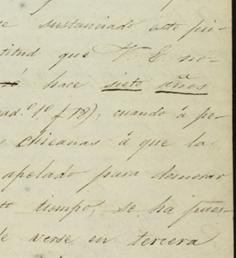 sustanciado este jui-
titud que V. E. no-
hace siete años
ad.º 1º f 78), cuando á pe-
chicanas á que la
apelado para demorar
tiempo, se ha pues-
e verse en tercera